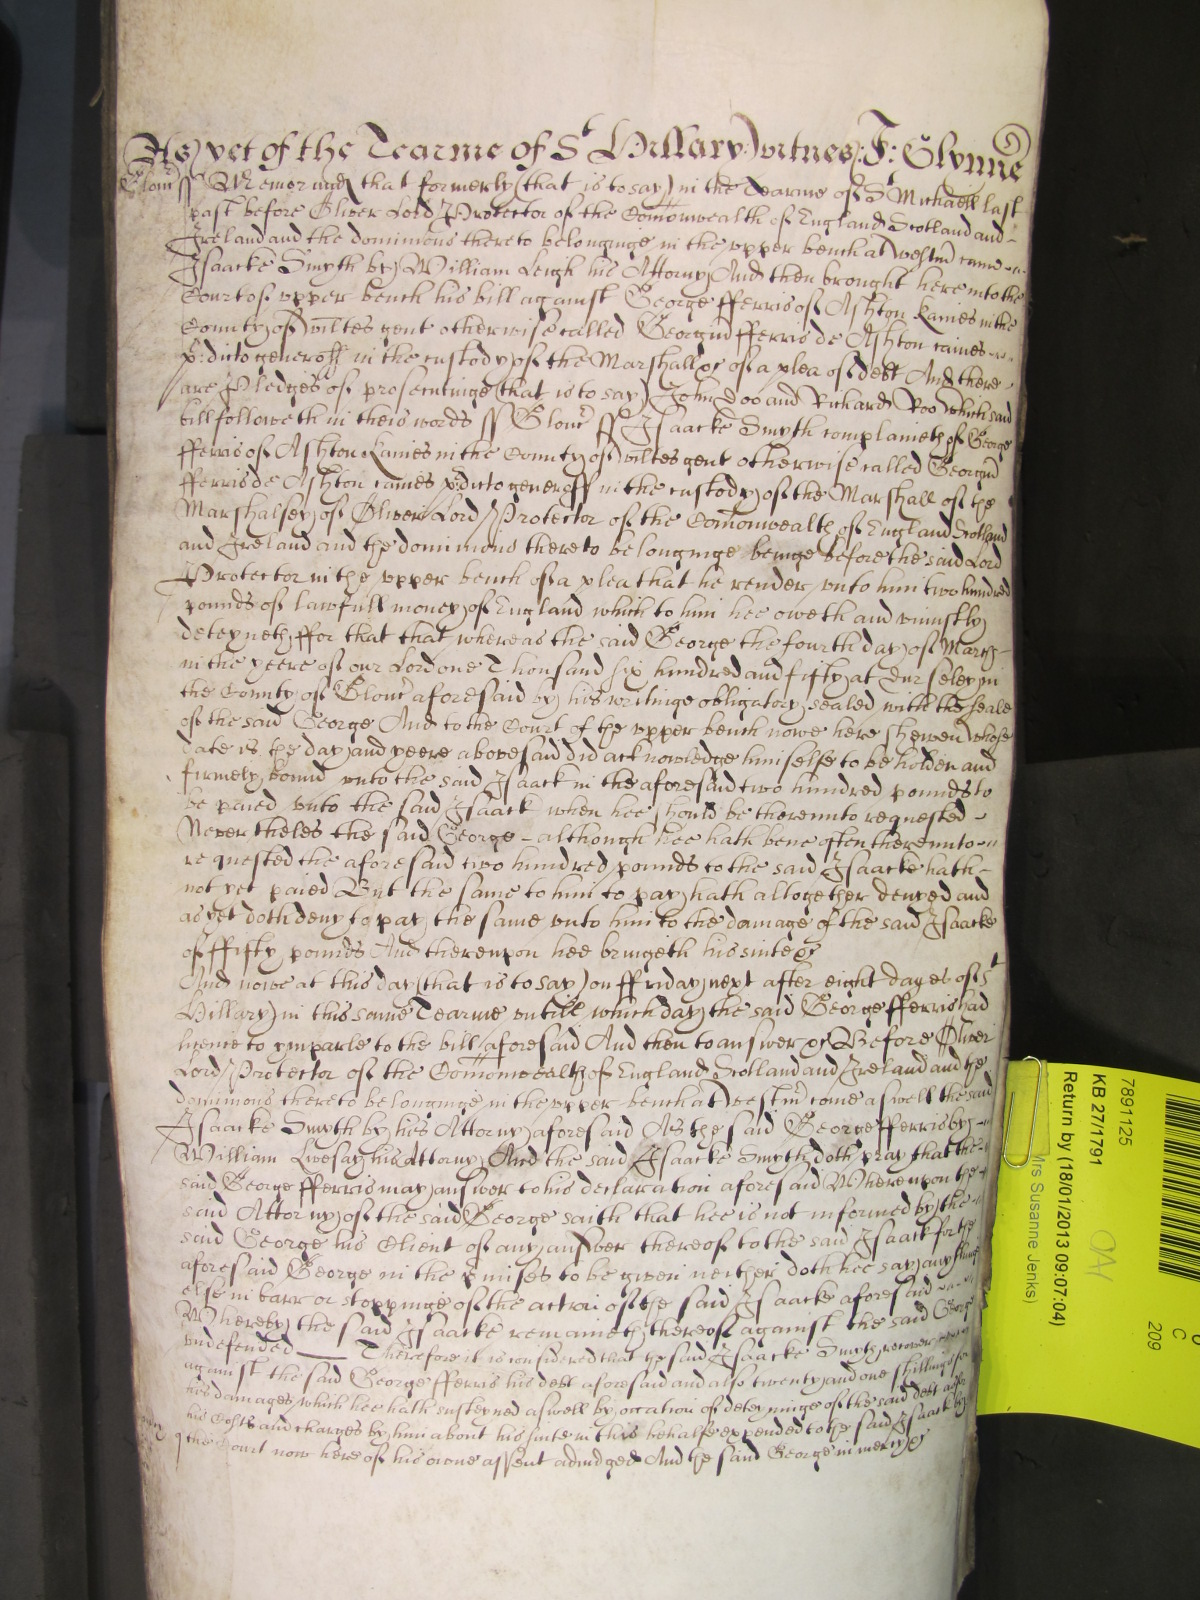 As yet of the Tearme of St Hillary witnes: J: Glynne
Glouc ss Memorand that formerly (that is to say) in the Tearme of St Michaell last
past before Oliver Lord Protector of the Comonwealth of England Scotland and
Ireland and the dominions thereto belonginge in the upper bench at Westm came
Isaacke Smyth by William Leigh his Attorny And then brought here into the
Court of upper bench his bill against George fferris of Ashton Kaines in the
County of Wiltes gent otherwise called Georgiu fferris de Ashton caines
p:dicto geneross in the custody of the Marshall &c of a plea of debt And there
are Pledges of prosecutinge (that is to say) John Doo and Richard Roo Which said
bill followeth in theis words ss Glouc ss Isaacke Smyth complaineth of George
fferris of Ashton Kaines in the County of Wiltes gent otherwise called Georgiu
fferris de Ashton caines p:dicto geneross in the custody of the Marshall of the
Marshalsey of Oliver Lord Protector of the Comonwealth of England Scotland
and Ireland and the dominions thereto belonginge beinge before the said Lord
Protector in the upper bench of a plea that he render unto him two hundred
pounds of lawfull money of England which to him hee oweth and uniustly
deteyneth ffor that that whereas the said George the fourth day of March
in the yeere of our Lord one Thousand six hundred and fifty at Durseley in
the County of Glouc aforesaid by his writinge obligatory sealed with the seale
of the said George And to the Court of the upper bench nowe here shewen whose
date is the day and yeere abovesaid did acknowledge himselfe to be holden and
firmely bound unto the said Isaack in the aforesaid two hundred pounds to
be paied unto the said Isaack when hee should be thereunto requested
Never theles the said George although hee hath bene often thereunto
requested the aforesaid two hundred pounds to the said Isaacke hath
not yet paied But the same to him to pay hath altogether denyed and
as yet doth deny to pay the same unto him to the damage of the said Isaacke
of ffifty pounds And thereupon hee bringeth his suite &c
And nowe at this day (that is to say) on ffriday next after eight dayes of St
Hillary in this same Tearme untill which day the said George fferris had
licence to imparle to the bill aforesaid And then to answer &c Before Oliver
Lord Protector of the Comonwealth of England Scotland and Ireland and the
dominions thereto belonginge in the upper bench at Westm come aswell the said
Isaacke Smyth by his Attorny aforesaid As the said George fferris by
William Livesay his Attorny And the said Isaacke Smyth doth pray that the
said George fferris may answer to his declaration aforesaid Whereupon the
said Attorny of the said George saith that hee is not informed by the
said George his Client of any answer thereof to the said Isaack for the
aforesaid George in the p'mises to be given neither doth hee say any thinge
else in barr or stoppinge of the action of the said Isaacke aforesaid
Whereby the said Isaacke remaineth thereof against the said George
undefended Therefore it is considered that the said Isaacke Smyth recover
against the said George fferris his debt aforesaid and also twenty and one shillings for
his damages which hee hath susteyned aswell by occation of deteyninge of the said debt as for
his Costs and charges by him about his suite in this behalfe expended to the said Isaack by
the Court now here of his owne assent adiudged And the said George in mercy &c
7891125
KB 27/1791
Return by (18/01/2013 09:07:04)
Mrs Susanne Jenks)
C
209